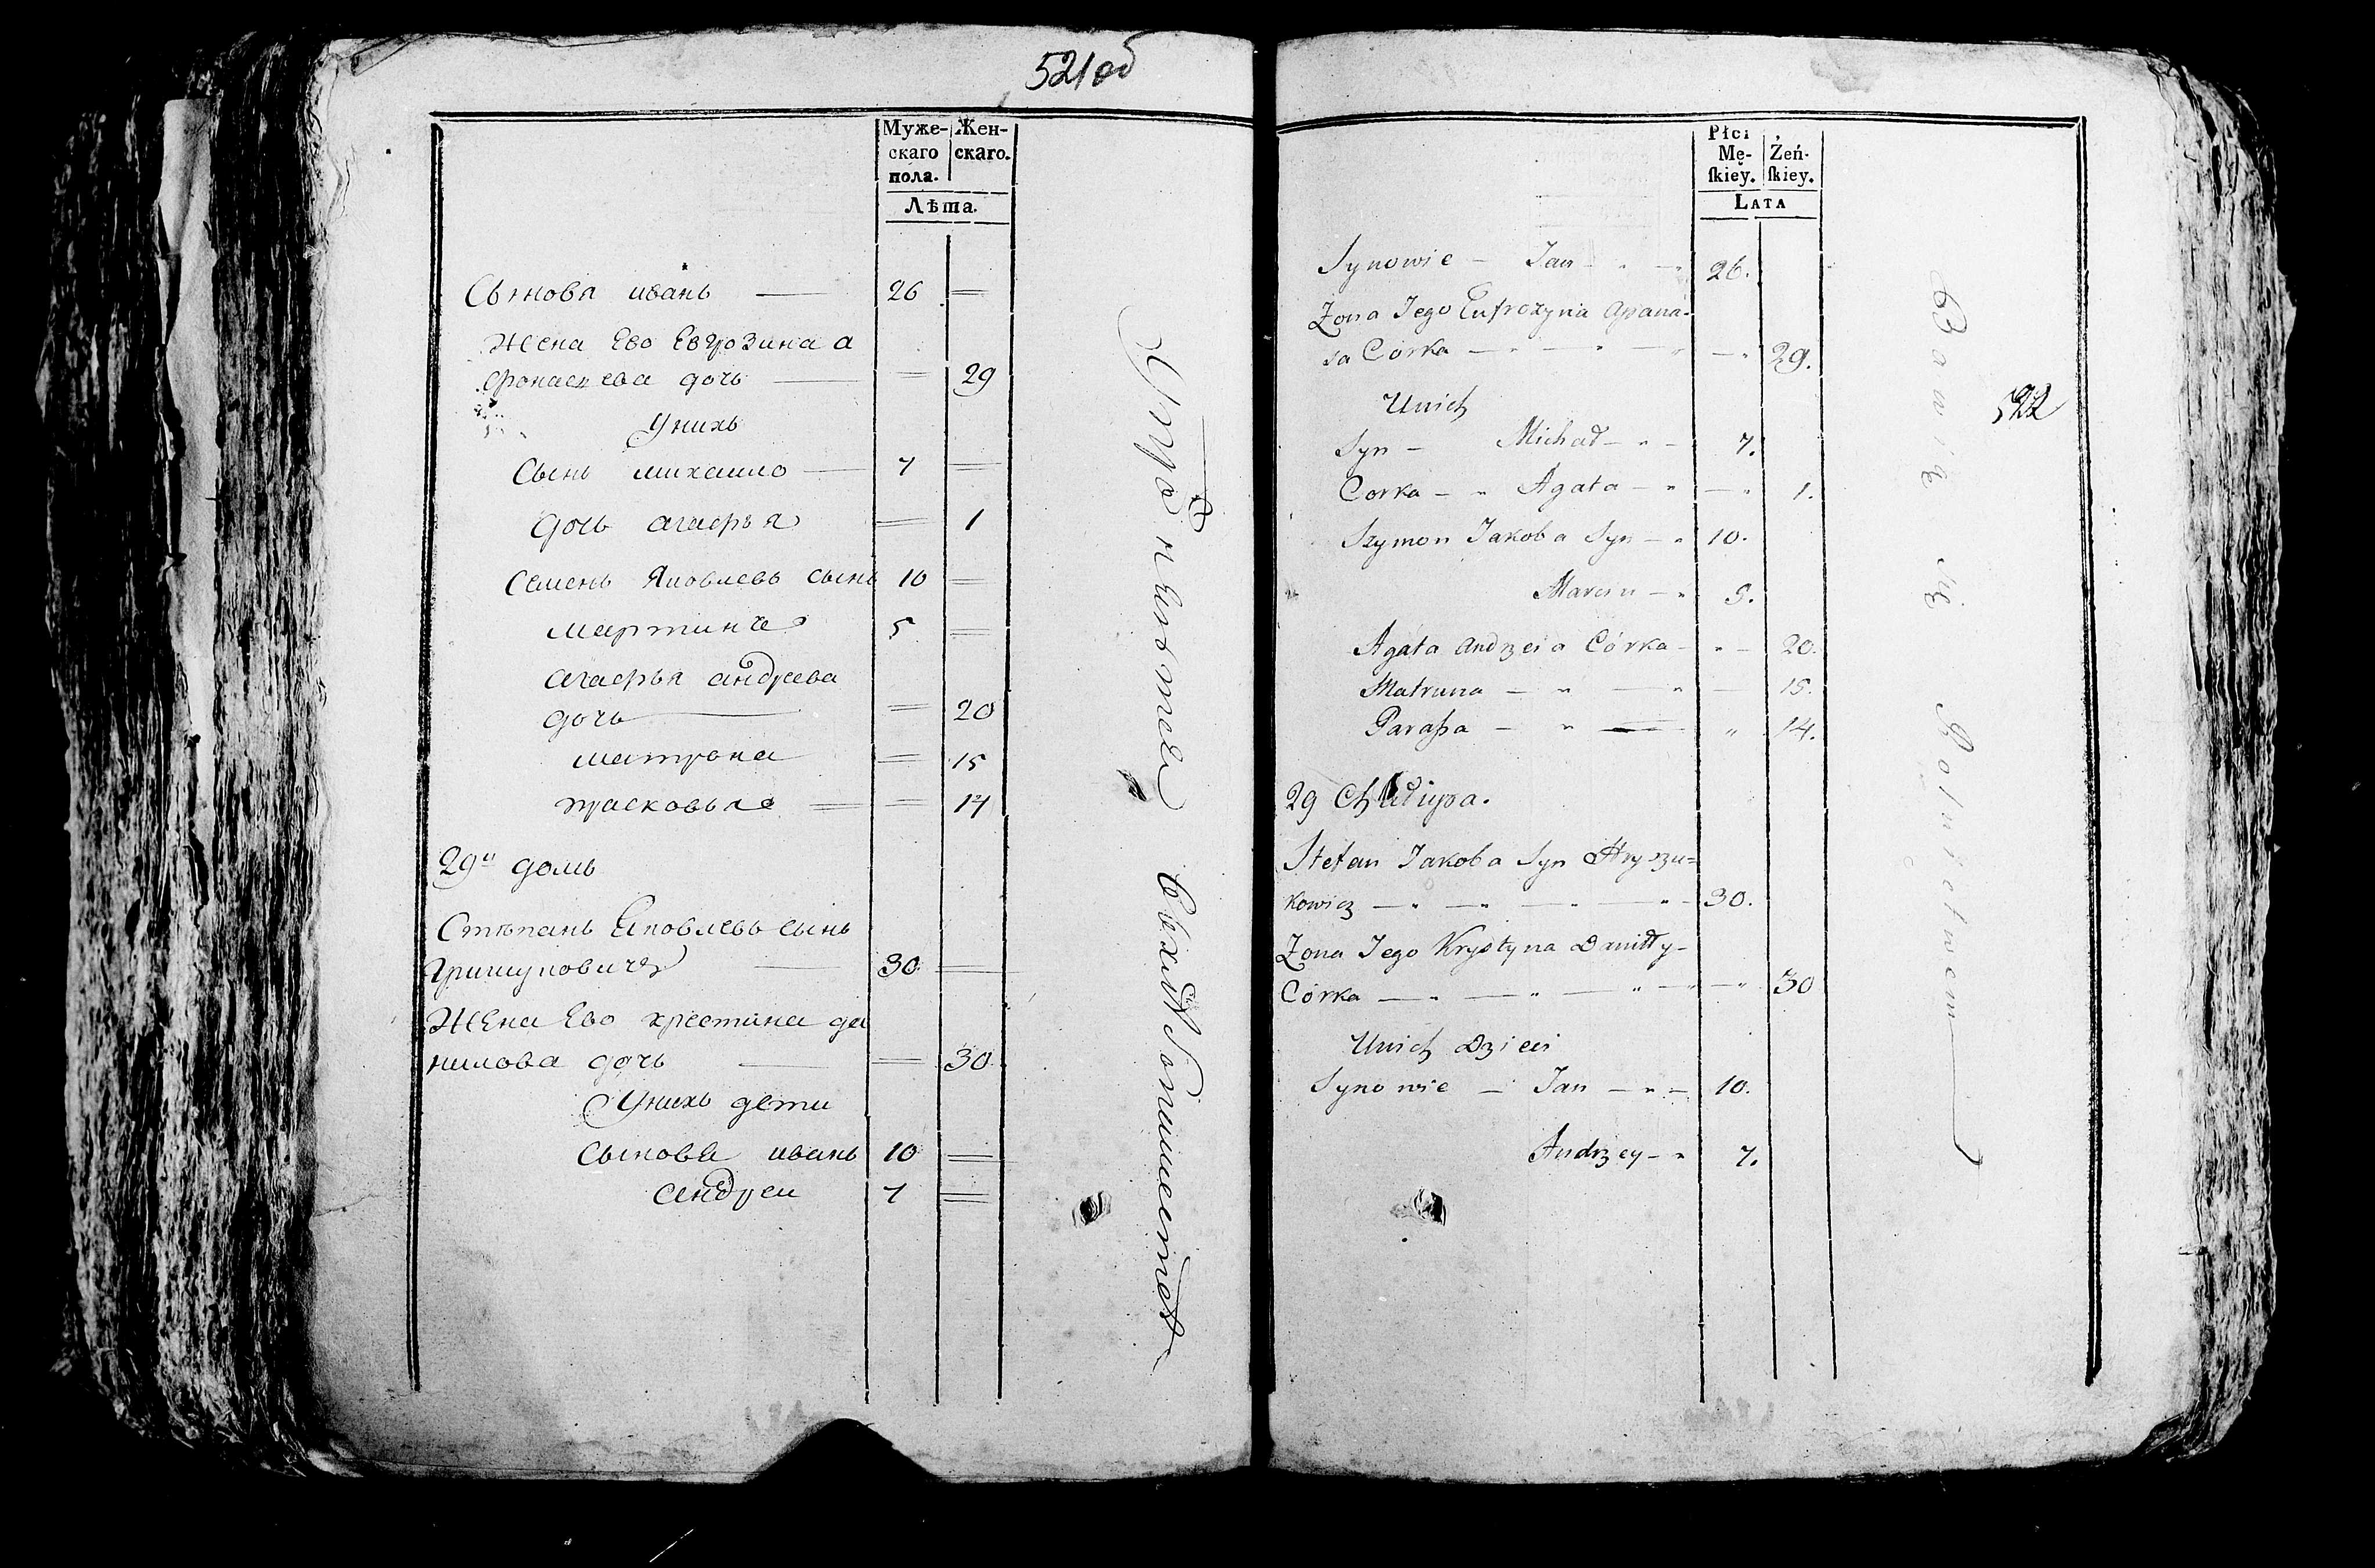 521об
Муже- Жен-
скаго скаго.
пола.
Лѣта.
Сыновя иванъ 26
Жена Ево Евгрозина а
фонасьева дочь 29
Унихъ
Сынъ михаило 7
дочь агафья 1
Семенъ Яковлевъ сынъ 10
мартинъ 5
агафья андреева
дочь 20
матрона 15
прасковья 14
29й домъ
Стѣпанъ Яковлевъ сынъ
Гришуковичъ 30
Жена Ево христина да
нилова дочь 30
Унихъ дети
Сыновя иванъ 10
андреи 7
Płci
Mę- Żeń-
ſkiey. ſkiey.
LATA
Synowie - Jan 26.
Zona Jego Eufrozyna Apana-
sa Córka 29.
Unich
Syn - Michał 7.
Corka - Agata 1.
Szymon Jakoba Syn 10.
Marcin 5.
Agata Andrzeia Córka 20.
Matruna 15.
Paraſza 14.
29 Chałupa.
Stefan Jakoba Syn Hryszu=
kowicz 30.
Zona Jego Krystyna Daniłły-
Córka 30
Unich Dzieci
Synowie - Jan 10.
Andrzey 7.
522
Bawią się Rolnictwem